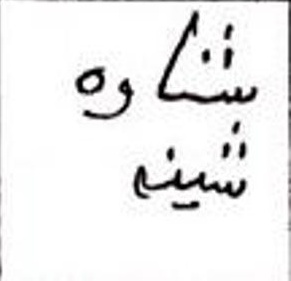 شناوه
شینه